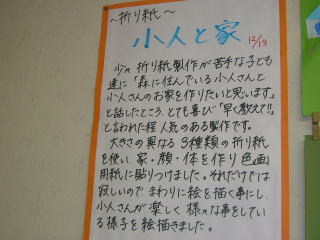 ～折り紙～
小人と家 12/13
少々 折り紙製作が苦手な子ども
達に「森に住んでいる小人さんと
小人さんのお家を作りたいと思います」
と話したところ、とても喜び「早く教えて!!」
と言われた程 人気のある製作です。
大きさの異なる3種類の折り紙
を使い、家・顔・体を作り色画
用紙に貼りつけました。それだけでは
寂しいので まわりに絵を描く事にし、
小人さんが 楽しく 様々な事をしてい
る様子を絵描きました。